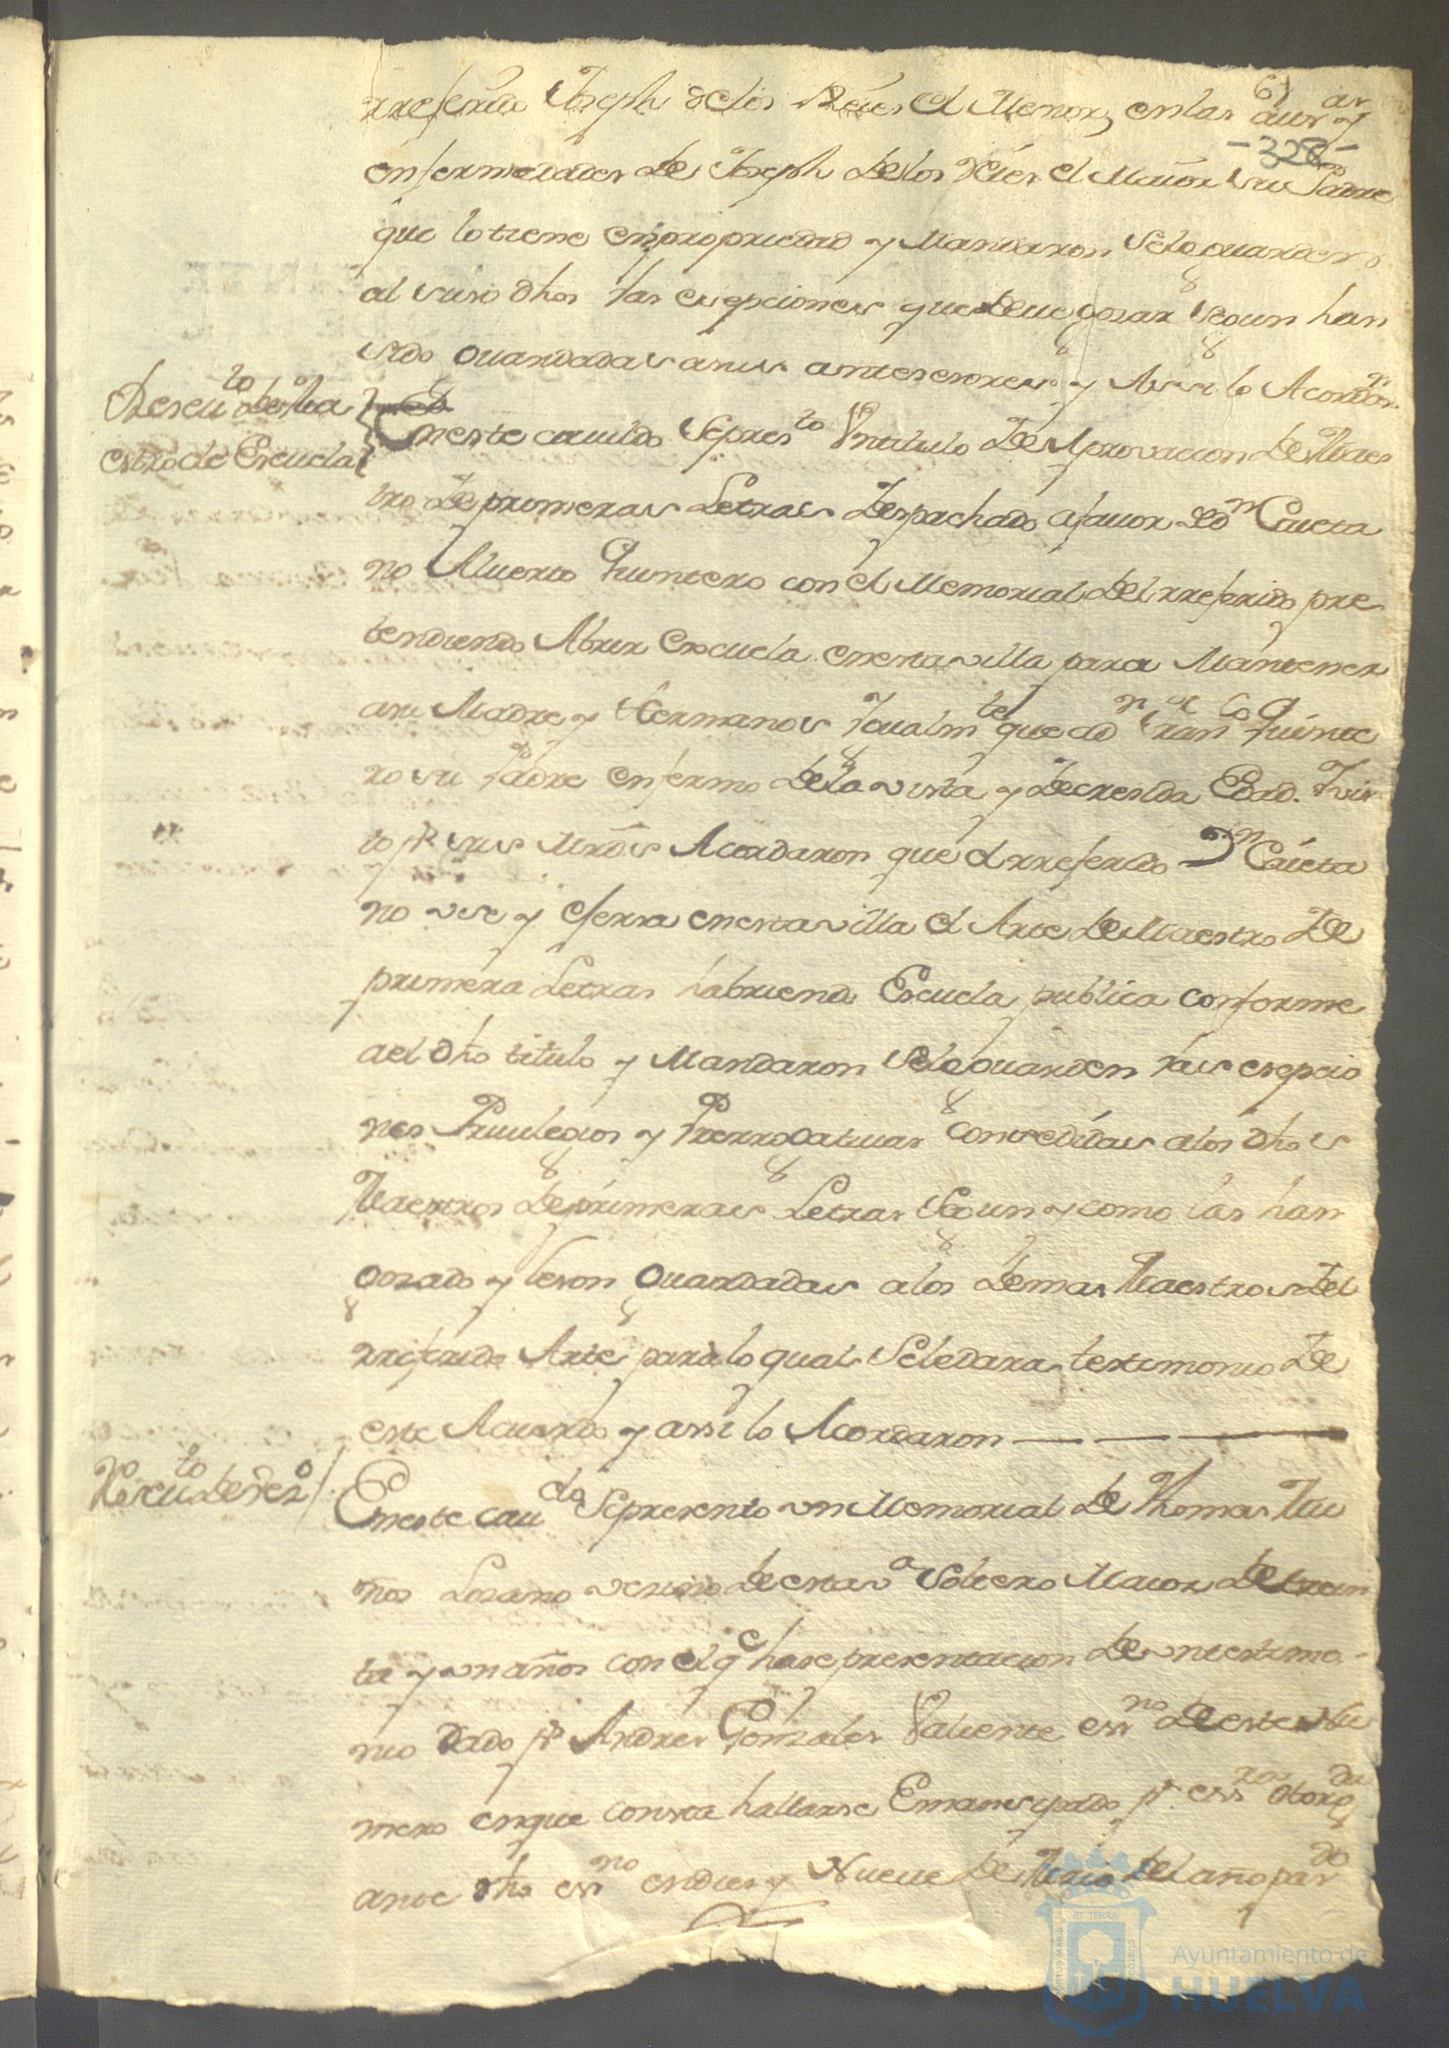 61
-328-
rreferido Joseph de los Reies el Menor, en las aus.ᵃˢ y
enfermedades de Joseph de los Reies el Maior su Padre
que lo tiene en propriedad y Mandaron se lo guarden
al suso dho las esepciones que deue gosar segun han
sido guardadas a sus antesesores y Assi lo Acordaron
Reseuᵗᵒ de Ma
estro de Escuela
En este cauildo se presᵗᵒ Vn titulo de Aprovacion de Maes
tro de primeras Letras despachado a fauor de Dⁿ Caieta
no Alverto Quintero con el Memorial del rreferido pre
tendiendo Abrir escuela en esta villa para Mantener
a su Madre y Hermanos Igualmᵗᵉ que a dⁿ Franᶜᵒ Quinte
ro su Padre enfermo de la vista y de cresida Edad. Vis
to pʳ sus Mrds Acordaron que el rreferido Dⁿ Caieta
no vse y esersa en esta villa el Arte de Maestro de
primera Letras habriendo Escuela publica conforme
a el dho titulo y Mandaron se le guarden las esepcio
nes Priuilegios y Prerrogatiuas consedidas a los dhos
Maestros de primeras Letras segun y como las han
gozado y leson guardadas a los demas Maestros del
rreferido Arte para lo qual se le dara testimonio de
este Acuerdo y assi lo Acordaron
Reseuᵗᵒ de vezᵒ
En este cauᵈᵒ se presento vn Memorial de Thomas Mu
ños Lozano vesino de esta vᵃ soltero Maior de trein
ta y vn años con el qᵉ hase presentacion de vn testimo
nio dado pʳ Andres Gonzales Valiente essⁿᵒ de este Nu
mero en que consta hallarse Emansipado pʳ essʳᵃ otorgᵈᵃ
ante dho essⁿᵒ en dies y Nueue de del año pasᵈᵒ
Ayuntamiento de
HUELVA